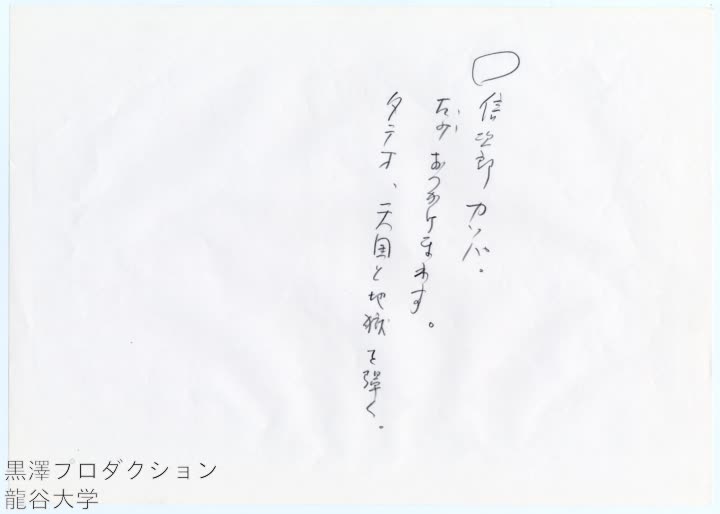 信次郎 カンバ。
おつかれます。
タテオ、天国と地獄を弾く。
黒澤プロダクション
龍谷大学